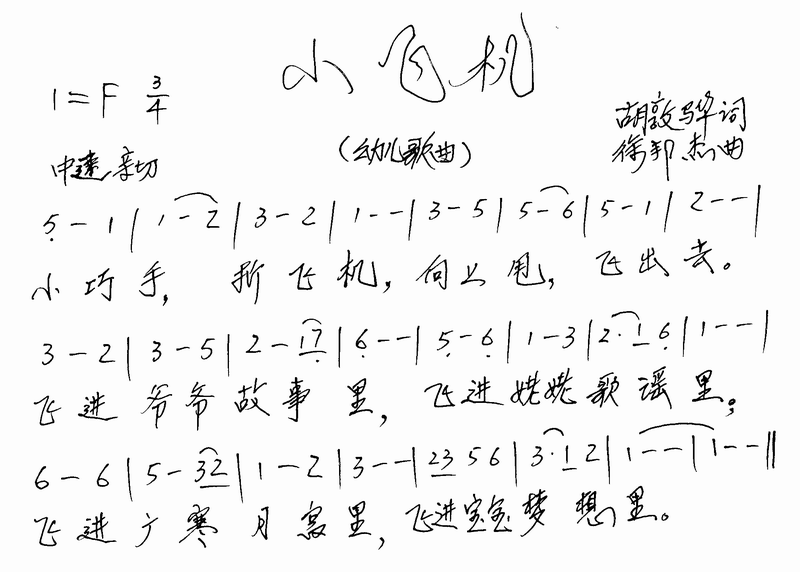 小飞机
1=F 3/4
(幼儿歌曲)
胡敦骅词
徐邦杰曲
中速 亲切
5̣ - 1 | 1 - 2 | 3 - 2 | 1 - - | 3 - 5 | 5 - 6 | 5 - 1 | 2 - - |
小巧手, 折飞机, 向上甩, 飞出去。
3 - 2 | 3 - 5 | 2 - 17̣ | 6̣ - - | 5̣ - 6̣ | 1 - 3 | 2· 1 6̣ | 1 - - |
飞进爷爷故事里, 飞进姥姥歌谣里;
6 - 6 | 5 - 32 | 1 - 2 | 3 - - | 23 5 6 | 3· 1 2 | 1 - - | 1 - - ‖
飞进广寒月宫里, 飞进宝宝梦想里。